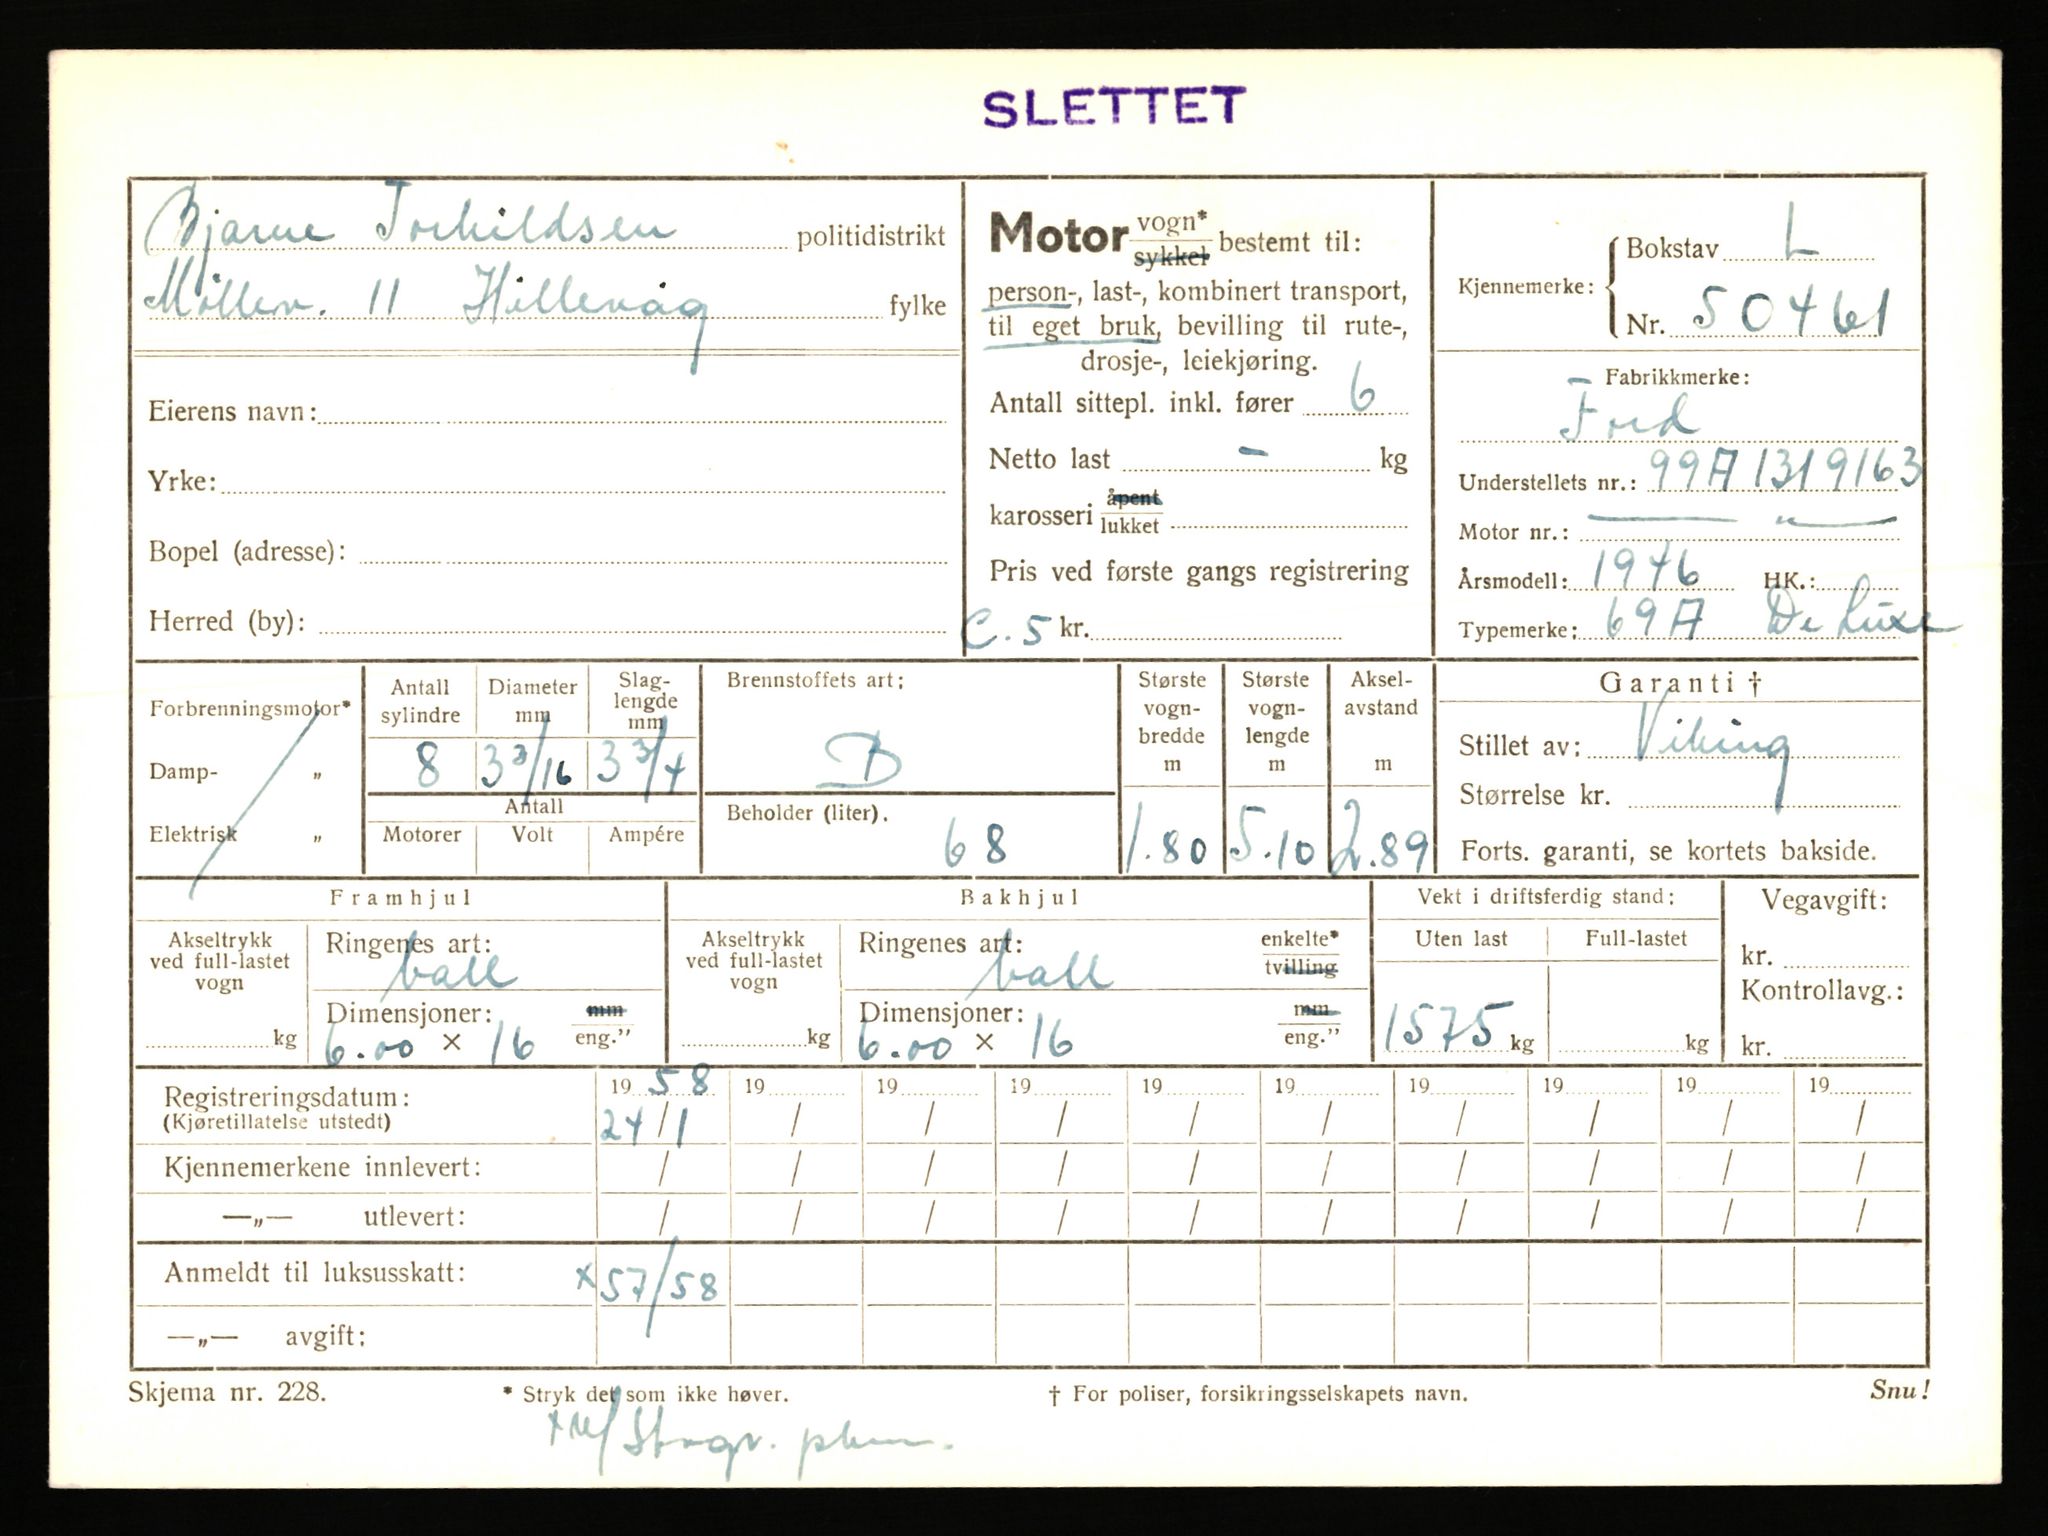 SLETTET
Bjarne Torkildsen politidistrikt
Møllerv. 11 Hillevåg fylke
Eierens navn:
Yrke:
Bopel (adresse):
Herred (by):
Motor vogn* sykkel bestemt til:
person-, last-, kombinert transport,
til eget bruk, bevilling til rute-,
drosje-, leiekjøring.
Antall sittepl. inkl. fører 6
Netto last - kg
karosseri åpent lukket
Pris ved første gangs registrering
C. 5 kr.
Kjennemerke: Bokstav L
Nr. 50461
Fabrikkmerke:
Ford
Understellets nr.: 99A 1319163
Motor nr.: — " —
Årsmodell: 1946 HK.:
Typemerke: 69A De Luxe
Forbrenningsmotor*
Damp- „
Elektrisk „
Antall sylindre Diameter mm Slaglengde mm
8 3 3/16 3 3/4
Antall
Motorer Volt Ampére
Brennstoffets art:
B
Beholder (liter).
68
Største vognbredde m Største vognlengde m Akselavstand m
1.80 5.10 2.89
Garanti †
Stillet av: Viking
Størrelse kr.
Forts. garanti, se kortets bakside.
Framhjul
Akseltrykk ved full-lastet vogn
kg
Ringenes art:
ball
Dimensjoner: mm eng.”
6.00 × 16
Bakhjul
Akseltrykk ved full-lastet vogn
kg
Ringenes art: enkelte* tvilling
ball
Dimensjoner: mm eng.”
6.00 × 16
Vekt i driftsferdig stand:
Uten last Full-lastet
1575 kg kg
Vegavgift:
kr.
Kontrollavg.:
kr.
Registreringsdatum: 1958 19 19 19 19 19 19 19 19 19
(Kjøretillatelse utstedt) 24/1 / / / / / / / / /
Kjennemerkene innlevert: / / / / / / / / / /
—„— utlevert: / / / / / / / / / /
Anmeldt til luksusskatt: x57/58
—„— avgift:
Skjema nr. 228. * Stryk det som ikke høver. † For poliser, forsikringsselskapets navn. Snu!